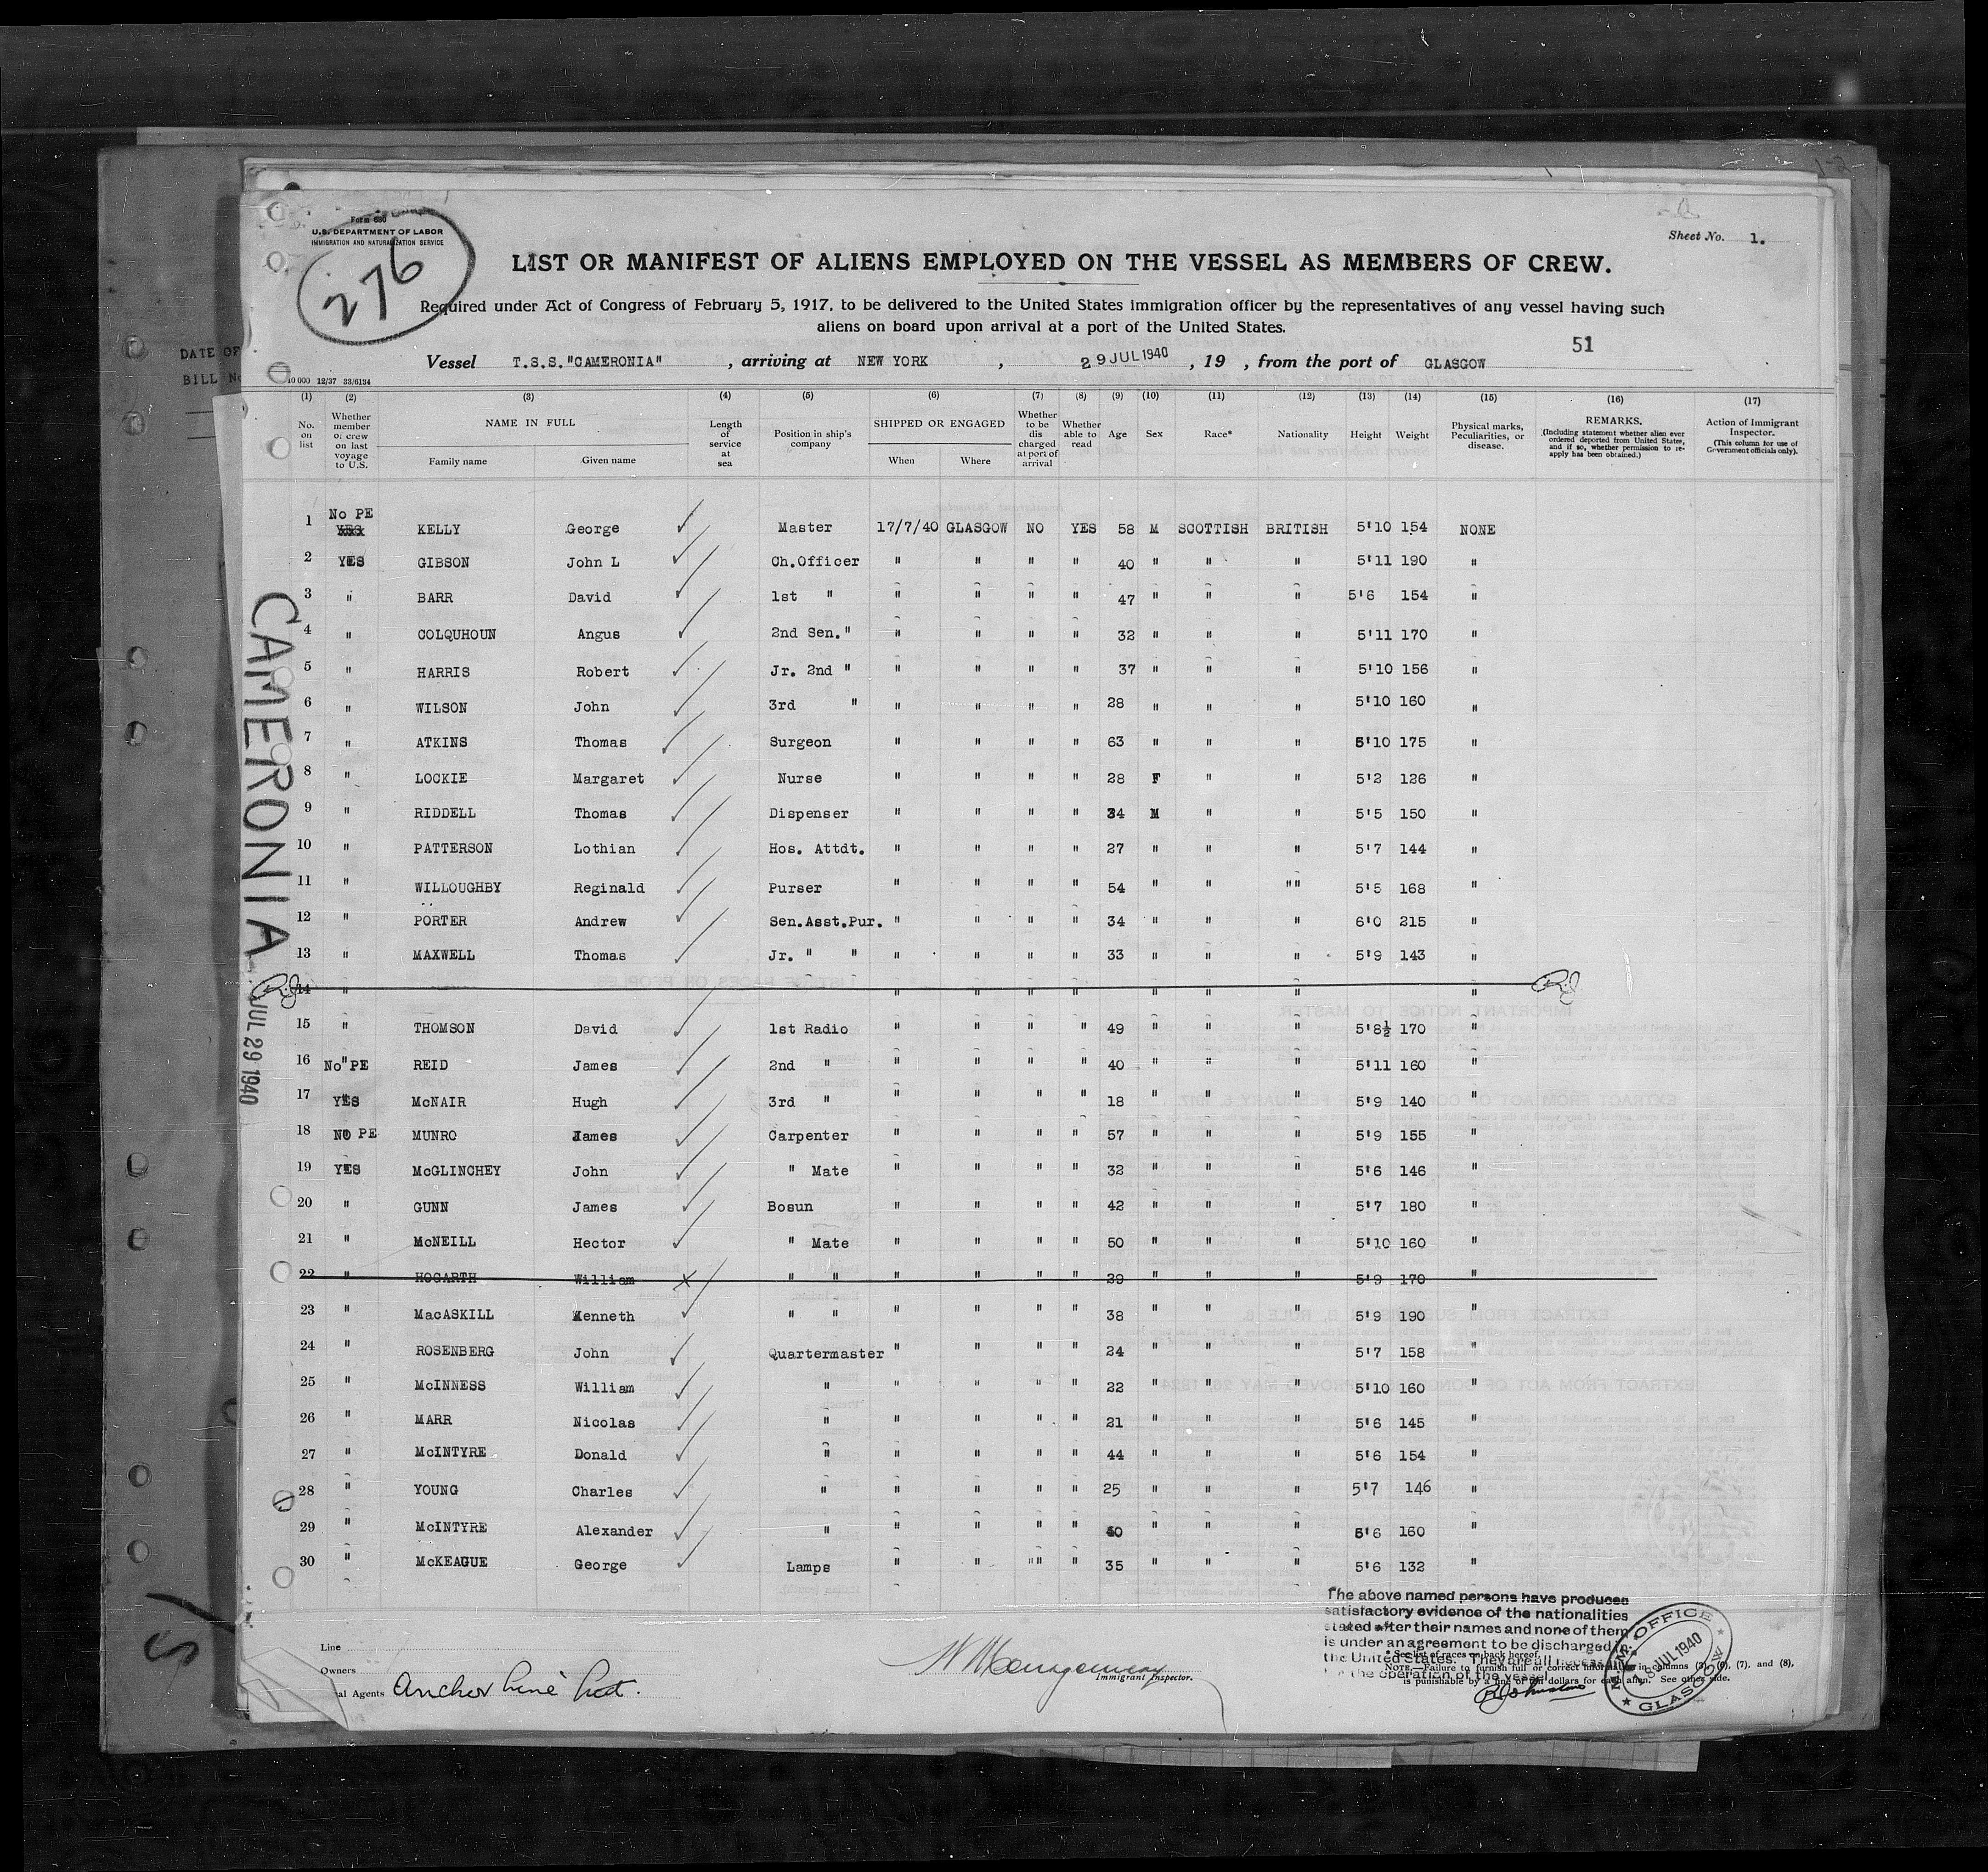 Form 680
U.S. DEPARTMENT OF LABOR
IMMIGRATION AND NATURALIZATION SERVICE
276
Sheet No. 1.
LIST OR MANIFEST OF ALIENS EMPLOYED ON THE VESSEL AS MEMBERS OF CREW.
Required under Act of Congress of February 5, 1917, to be delivered to the United States immigration officer by the representatives of any vessel having such
aliens on board upon arrival at a port of the United States.
51
DATE OF
BILL No
Vessel T.S.S."CAMERONIA" , arriving at NEW YORK , 29 JUL 1940 , 19 , from the port of GLASGOW
10 000 12/37 33/6134
(1) (2) (3) (4) (5) (6) (7) (8) (9) (10) (11) (12) (13) (14) (15) (16) (17)
No. on list
Whether member of crew on last voyage to U.S.
NAME IN FULL
Family name Given name
Length of service at sea
Position in ship's company
SHIPPED OR ENGAGED
When Where
Whether to be dis charged at port of arrival
Whether able to read
Age
Sex
Race*
Nationality
Height
Weight
Physical marks, Peculiarities, or disease.
REMARKS.
(Including statement whether alien ever ordered deported from United States, and if so, whether permission to re-apply has been obtained.)
Action of Immigrant Inspector.
(This column for use of Government officials only).
1 No PE YES KELLY George Master 17/7/40 GLASGOW NO YES 58 M SCOTTISH BRITISH 5'10 154 NONE
2 YES GIBSON John L Ch.Officer " " " " 40 " " " 5'11 190 "
3 " BARR David 1st " " " " " 47 " " " 5'6 154 "
4 " COLQUHOUN Angus 2nd Sen." " " " " 32 " " " 5'11 170 "
5 " HARRIS Robert Jr. 2nd " " " " " 37 " " " 5'10 156 "
6 " WILSON John 3rd " " " " " 28 " " " 5'10 160 "
7 " ATKINS Thomas Surgeon " " " " 63 " " " 5'10 175 "
8 " LOCKIE Margaret Nurse " " " " 28 F " " 5'2 126 "
9 " RIDDELL Thomas Dispenser " " " " 34 M " " 5'5 150 "
10 " PATTERSON Lothian Hos. Attdt. " " " " 27 " " " 5'7 144 "
11 " WILLOUGHBY Reginald Purser " " " " 54 " " "" 5'5 168 "
12 " PORTER Andrew Sen.Asst.Pur. " " " " 34 " " " 6'0 215 "
13 " MAXWELL Thomas Jr. " " " " " " 33 " " " 5'9 143 "
14 " " " " " " " " "
15 " THOMSON David 1st Radio " " " " 49 " " " 5'8½ 170 "
16 No "PE REID James 2nd " " " " " 40 " " " 5'11 160 "
17 YES McNAIR Hugh 3rd " " " " " 18 " " " 5'9 140 "
18 NO PE MUNRO James Carpenter " " " " 57 " " " 5'9 155 "
19 YES McGLINCHEY John " Mate " " " " 32 " " " 5'6 146 "
20 " GUNN James Bosun " " " " 42 " " " 5'7 180 "
21 " McNEILL Hector " Mate " " " " 50 " " " 5'10 160 "
22 " HOGARTH William " " " " " " 39 " " " 5'9 170 "
23 " MacASKILL Kenneth " " " " " " 38 " " " 5'9 190 "
24 " ROSENBERG John Quartermaster " " " " 24 " " " 5'7 158 "
25 " McINNESS William " " " " " 22 " " " 5'10 160 "
26 " MARR Nicolas " " " " " 21 " " " 5'6 145 "
27 " McINTYRE Donald " " " " " 44 " " " 5'6 154 "
28 " YOUNG Charles " " " " " 25 " " " 5'7 146 "
29 " McINTYRE Alexander " " " " " 40 " " " 5'6 160 "
30 " McKEAGUE George Lamps " " "" " 35 " " " 5'6 132 "
CAMERONIA
JUL 29 1940
The above named persons have produced
satisfactory evidence of the nationalities
stated after their names and none of them
is under an agreement to be discharged in
the United States. They are all
for the operation of the vessel
Line
Owners
al Agents Anchor Line
Immigrant Inspector.
* See list of races on back hereof.
NOTE.—Failure to furnish full or correct information in columns (2), (6), (7), and (8),
is punishable by a fine of ten dollars for each alien. See other side.
OFFICE
8 JUL 1940
GLASGOW